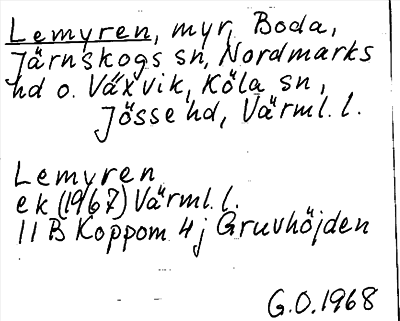 Lemyren, myr, Boda,
Järnskogs sn, Nordmarks
hd o. Växvik, Köla sn,
Jösse hd, Värml. l.
Lemyren
ek (1967) Värml. l.
11 B Koppom 4 j Gruvhöjden
G.O. 1968